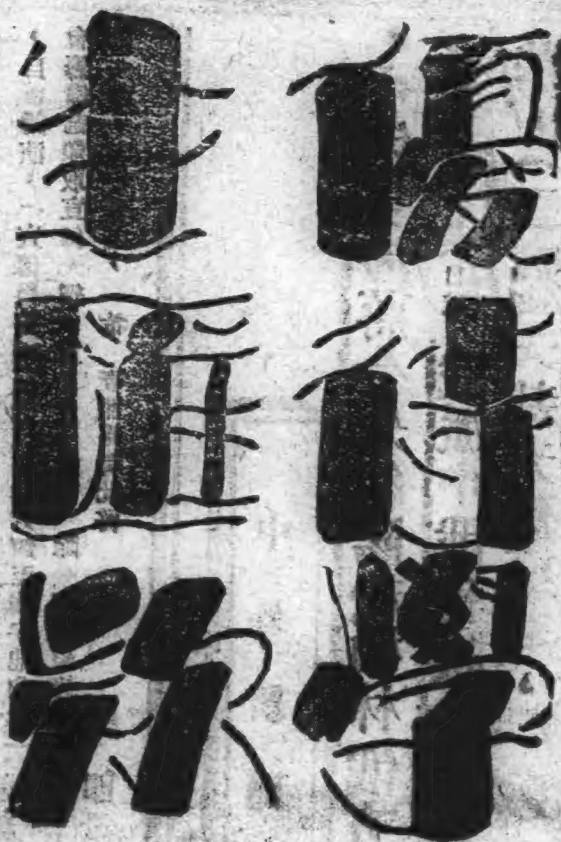 優待學
生匯款